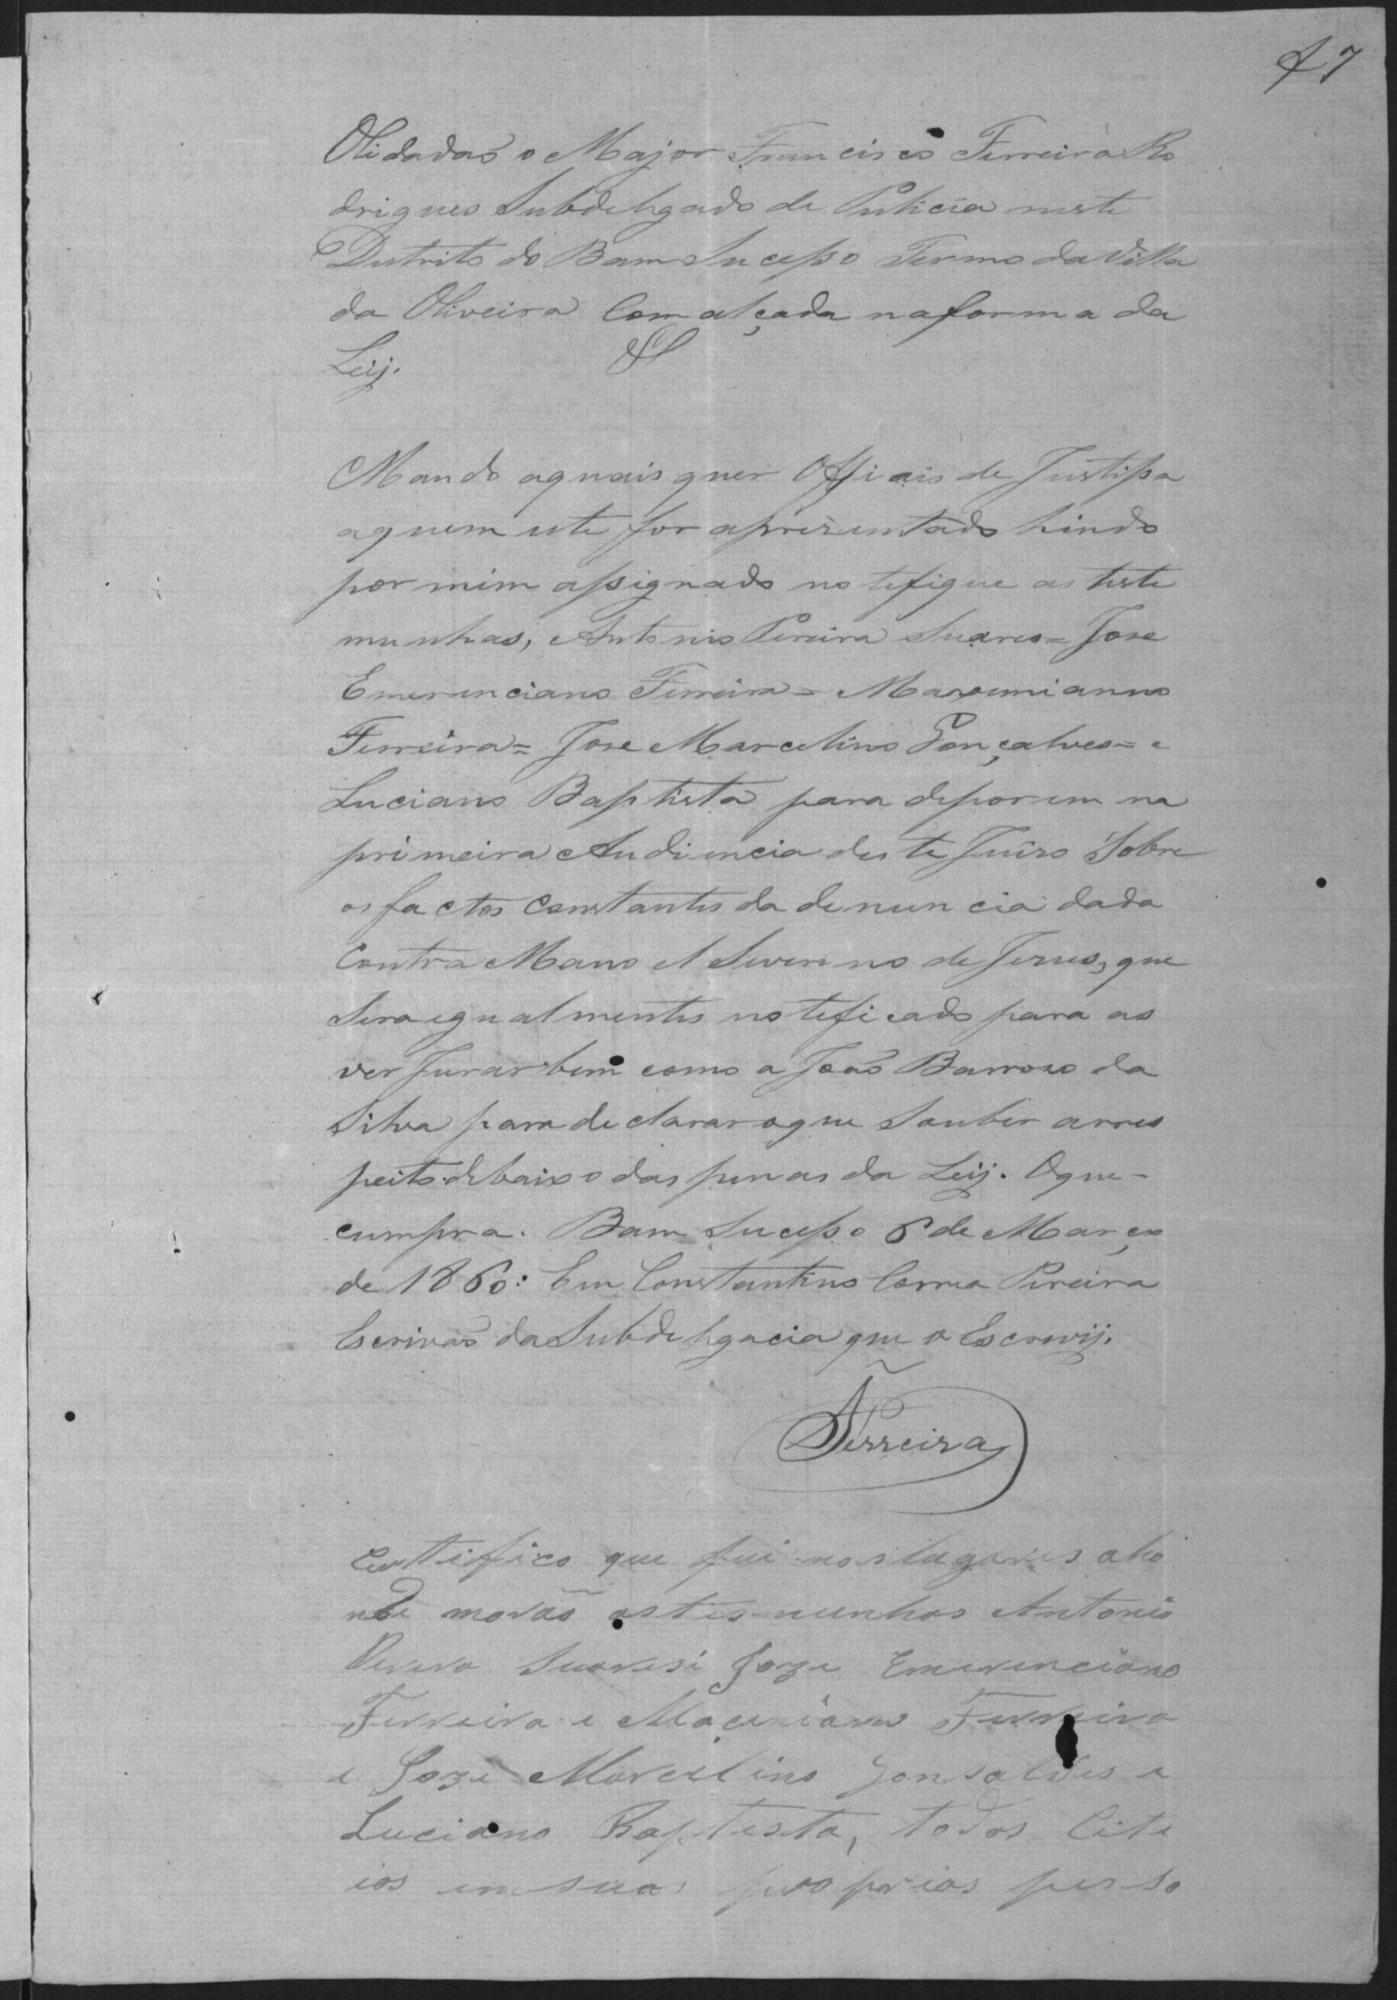 47
Olidadaõ o Major Francisco Ferreira Ro
drigues Subdelegado de Pulicia neste
Destrito do Bam Sucesso Termo da Villa
da Oliveira Com alçada na forma da
Leij.
Mando aquais quer Officiais de Justissa
aquem este for aprezentado hindo
por mim assignado notefique as teste
munhas, Antonio Pereira Suares= Jose
Emerenciano Ferreira= Maxemianno
Ferreira= Jose Marcelino Gonçalves= e
Luciano Baptista para deporem na
primeira Audiencia deste Juizo Sobre
os factos Constantes da denuncia dada
Contra Mano el Severino de Jesus, que
Sera egualmentes noteficado para as
ver Jurar bem como a Joaõ Barrozo da
Silva para declarar oque Souber arres
peito debaixo das penas da Leij. Oque
cumpra. Bam Sucesso 6 de Março
de 1860: Eu Constantino Correa Pereira
Escrivaõ da Subdelegacia que o Escrevij.
Ferreira
Certifico que fui nos lugares aho
nde moraõ as tesmunhas Antonio
Perera Suares i Joze Emerenciano
Ferreira e Maçeniano Ferreira
e Joze Marcelino Gonsalves e
Luciano Baptista, todos Cite
ios em suas proprias perso